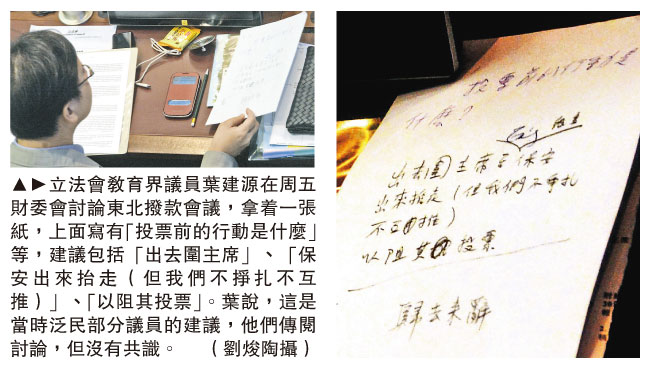 ▲▶立法會教育界議員葉建源在周五
財委會討論東北撥款會議，拿着一張
紙，上面寫有「投票前的行動是什麼」
等，建議包括「出去圍主席」、「保
安出來抬走（但我們不掙扎不互
推）」、「以阻其投票」。葉說，這是
當時泛民部分議員的建議，他們傳閱
討論，但沒有共識。　（劉焌陶攝）
投票前的行動是
什麼？
出去圍主席 保安
出來抬走（但我們不掙扎
不互推）
以阻其投票
歸去來辭